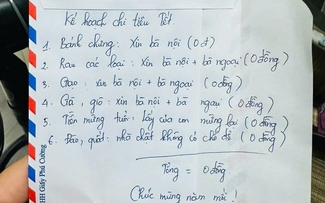 Kế hoạch chi tiêu Tết
1. Bánh chưng: Xin bà nội (0 đ)
2. Rau các loại: Xin bà nội + bà ngoại (0 đồng)
3. Gạo: xin bà nội + bà ngoại (0 đồng)
4. Gà, giò: xin bà nội + bà ngoại (0 đồng)
5. Tiền mừng tuổi: lấy của con mừng lại (0 đồng)
6. Đào, quất: nhà chật không có chỗ để (0 đồng)
Tổng = 0 đồng
Chúc mừng năm mới!
HH Giấy Phú Cường